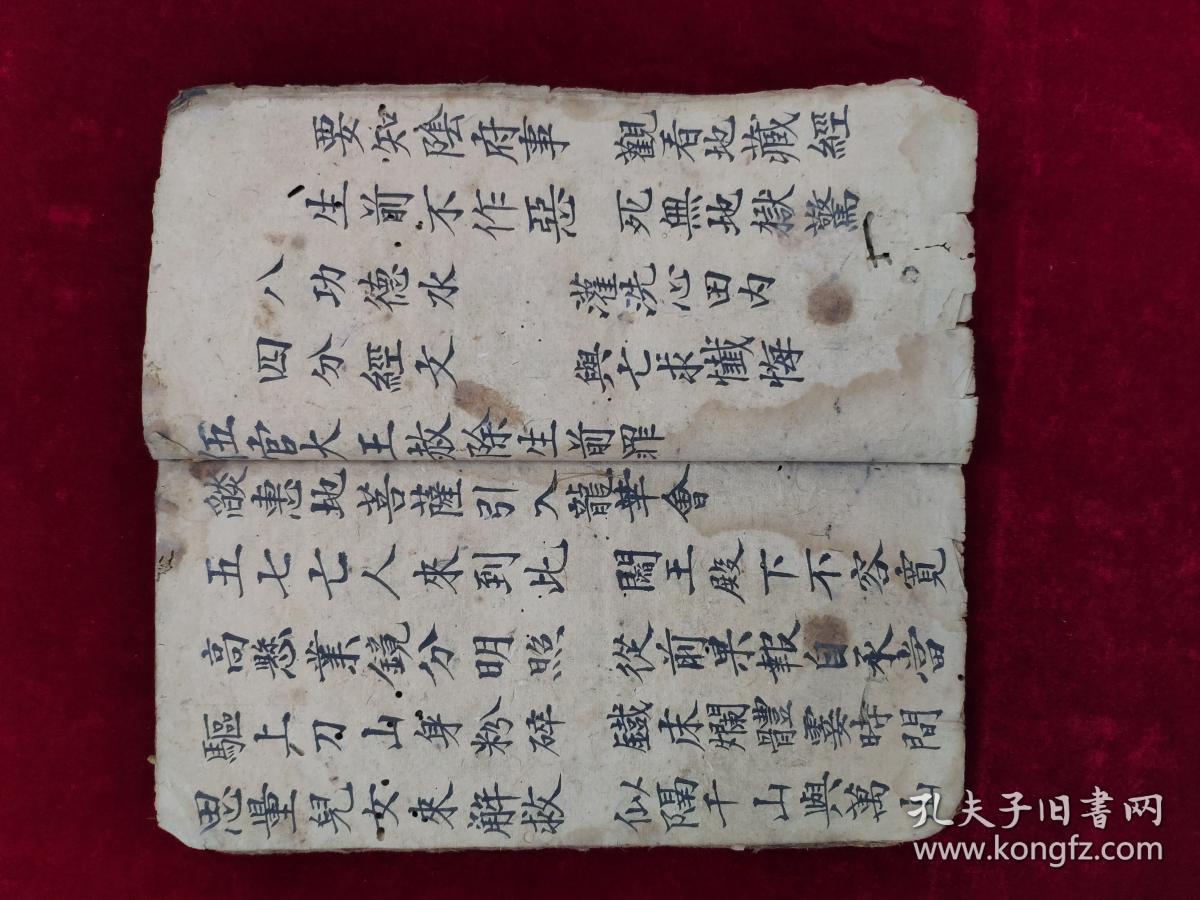 要知陰府事 觀看地藏經
生前不作惡 死無地獄驚
八功德水 灌洗心田内
四分經文 與亡求懺悔
伍官大王赦除生前罪
燄惠地菩薩引入龍華會
五七亡人來到此 閻王殿下不容寬
高懸業鏡分明照 從前果報自承當
驅上刀山身粉碎 鐵床爛體霎時間
思量兒女來解救 似隔千山與萬山
孔夫子旧书网
www.kongfz.com